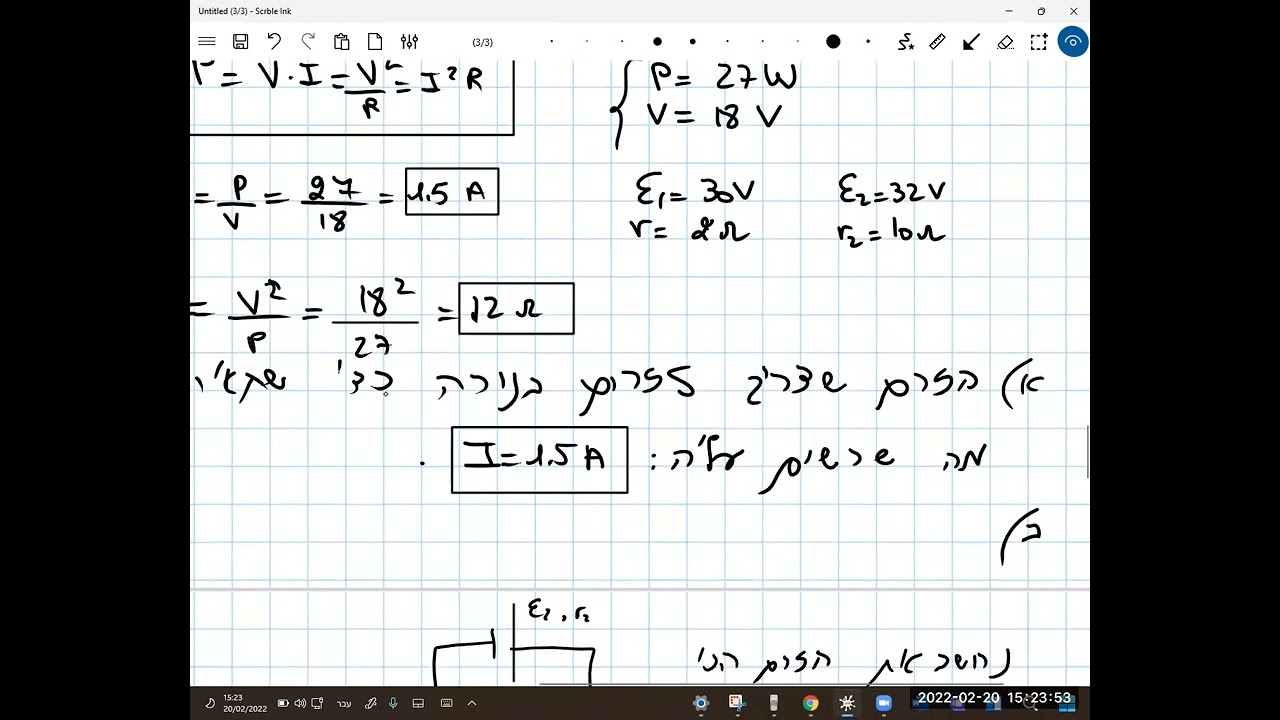 Untitled (3/3) - Scrble Ink
(3/3)
P = V·I = V²/R = I²R
P = 27W
V = 18 V
= P/V = 27/18 = 1.5 A
ε₁= 30V
ε₂=32V
r = 2Ω
r₂=10Ω
= V²/P = 18²/27 = 12 Ω
א) הזרם שצריך לזרום בנורה כדי
מה שרשום עליה: I = 1.5 A .
ב)
ε₂, r₂
נחשב את הזרם
15:23
20/02/2022
עבר
2022-02-20 15:23:53